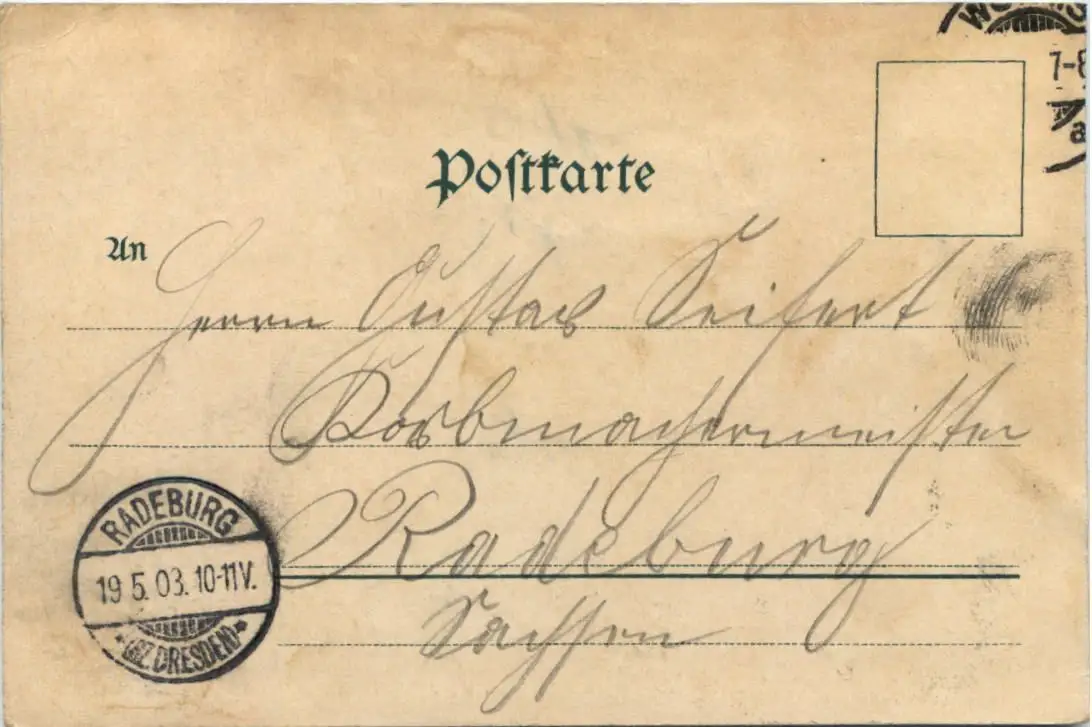 Postkarte
7-8
a
An
Herrn Gustav Seifert
Korbmachermeister
Radeburg
Sachsen
RADEBURG
19 5. 03. 10-11V.
*(BZ. DRESDEN)*